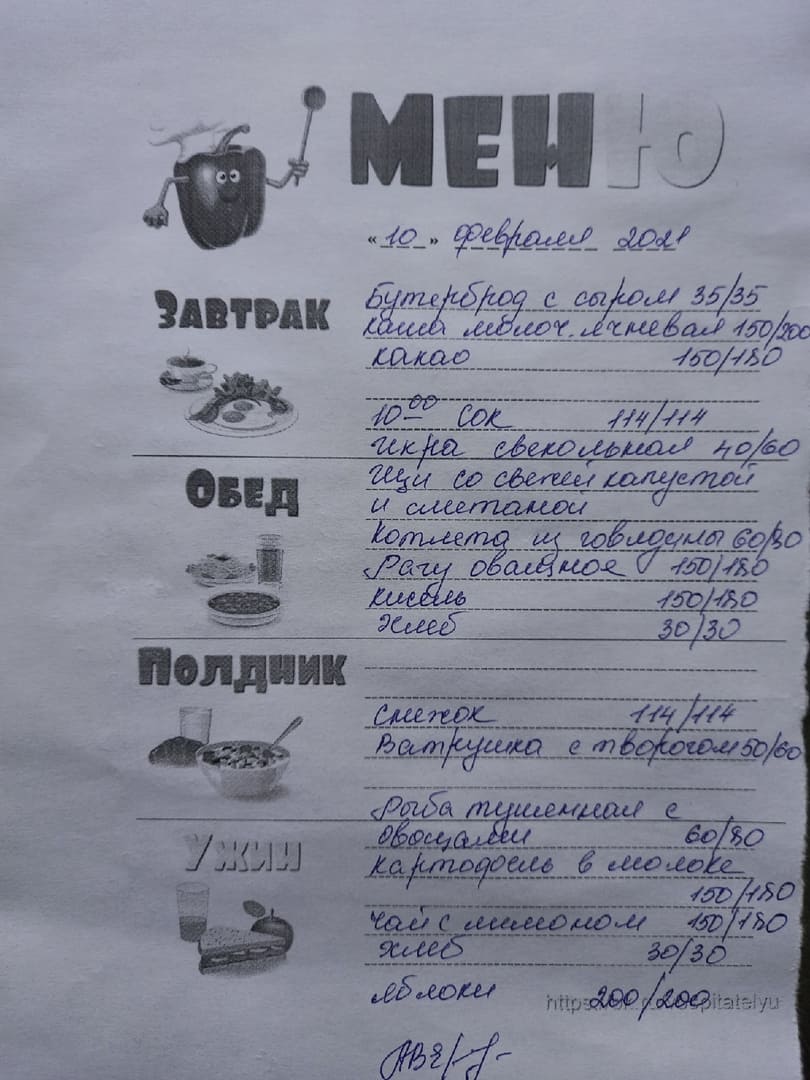 МЕНЮ
«10» февраля 2021
ЗАВТРАК
Бутерброд с сыром 35/35
каша молоч. ячневая 150/200
какао 150/180
10-00 сок 114/114
Икра свекольная 40/60
ОБЕД
Щи со свежей капустой
и сметаной
Котлета из говядины 60/80
Рагу овощное 150/180
кисель 150/180
Хлеб 30/30
ПОЛДНИК
снежок 114/114
Ватрушка с творогом 50/60
Рыба тушенная с
УЖИН
овощами 60/80
картофель в молоке
150/180
чай с лимоном 150/180
хлеб 30/30
яблоки 200/200